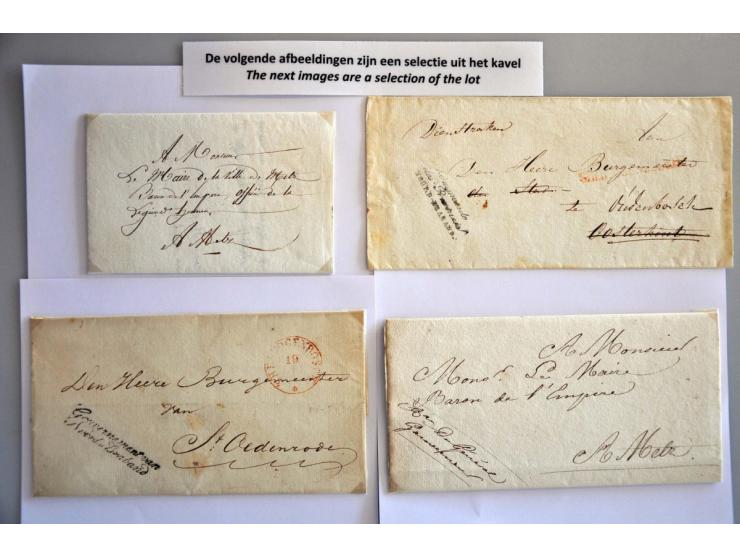 De volgende afbeeldingen zijn een selectie uit het kavel
The next images are a selection of the lot
A Monsieur
Le Maire de la ville de Metz
Baron de l'Empire, offic. de la
Légion
A Metz
Dienstzaken
Aan
Den Heere Burgemeester
der Stad
te Oudenbosch
Oosterhout
Den Heere Burgemeester
van
St Oedenrode
19
Gouvernement van
Noord-Braband
A Monsieur
Monsr. Le Maire
Baron de l'Empire
A Metz.